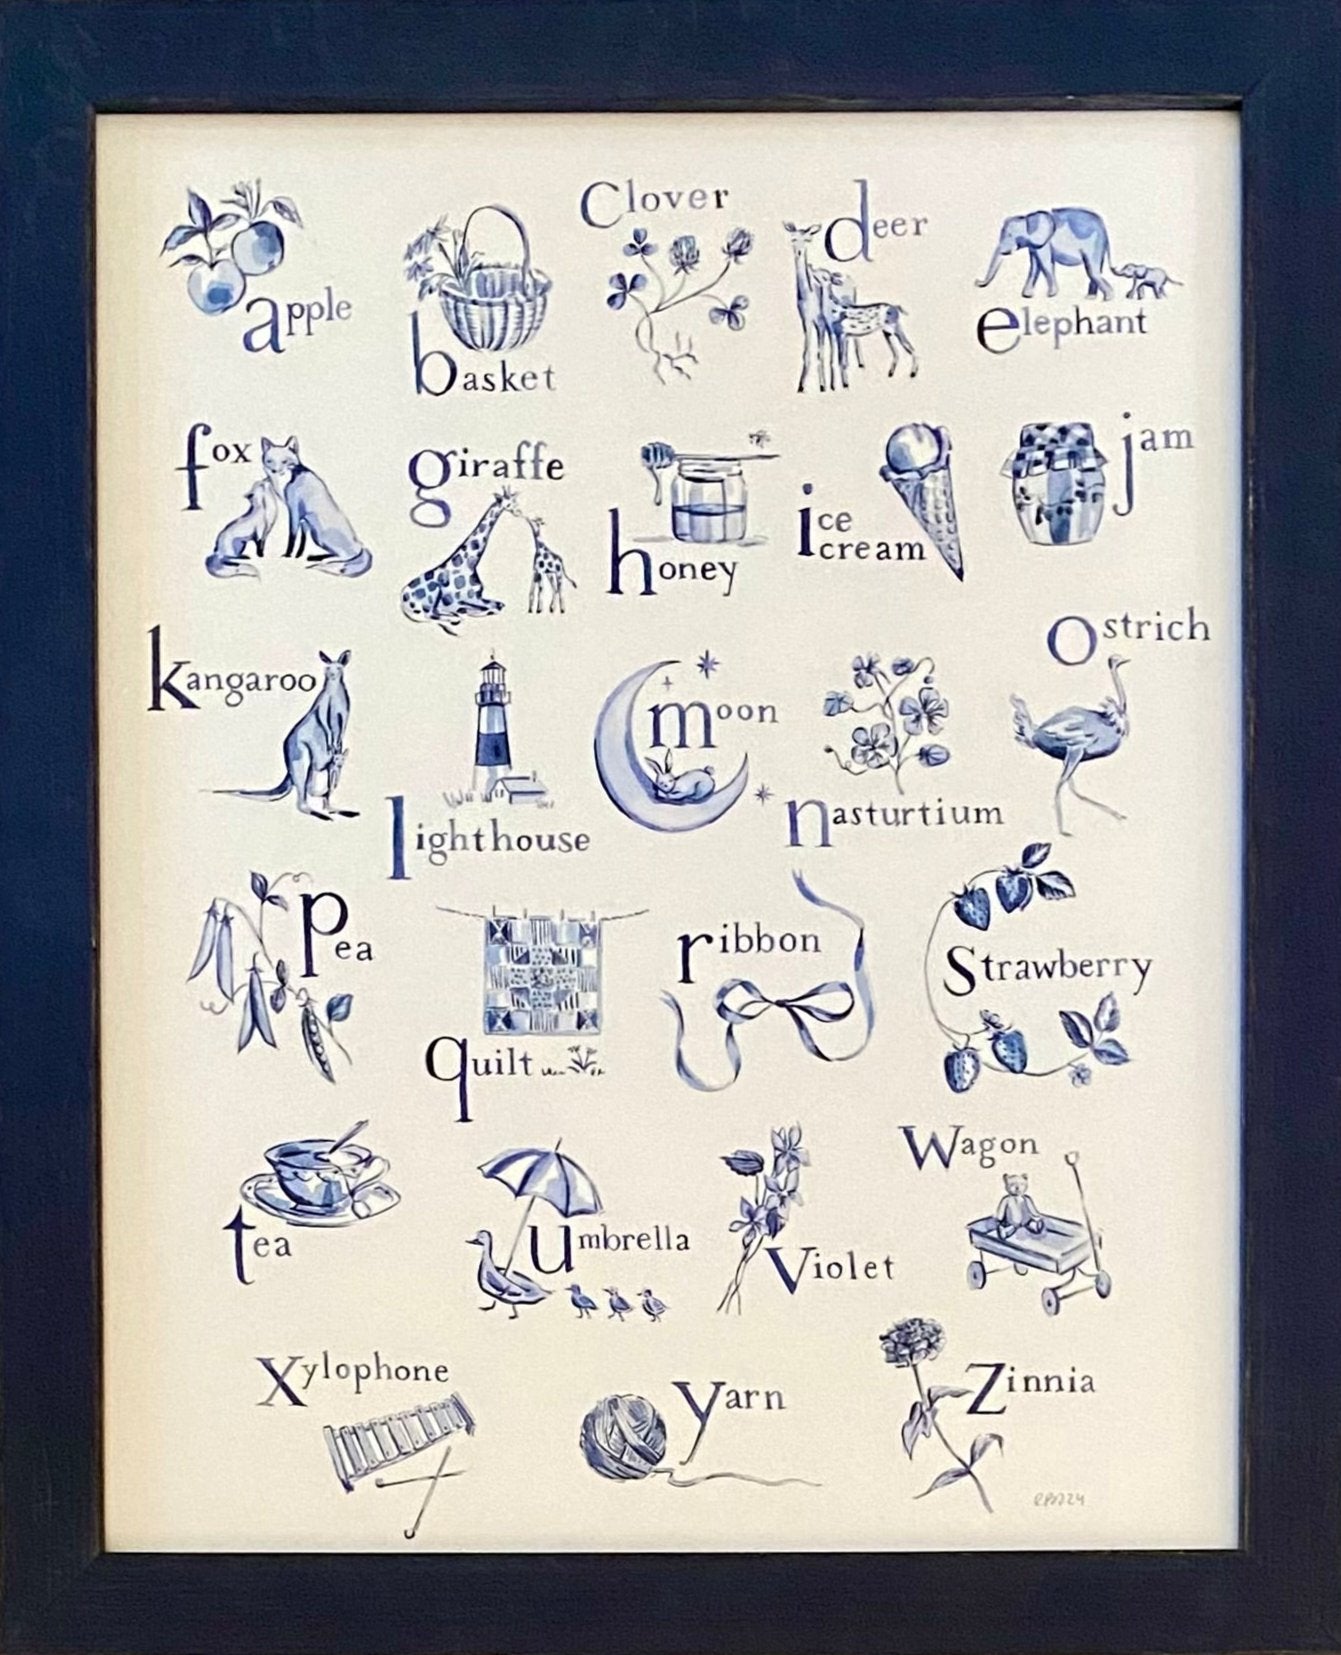 apple
basket
Clover
deer
elephant
fox
giraffe
honey
ice
cream
jam
kangaroo
lighthouse
moon
nasturtium
Ostrich
Pea
quilt
ribbon
Strawberry
tea
Umbrella
Violet
Wagon
Xylophone
Yarn
Zinnia